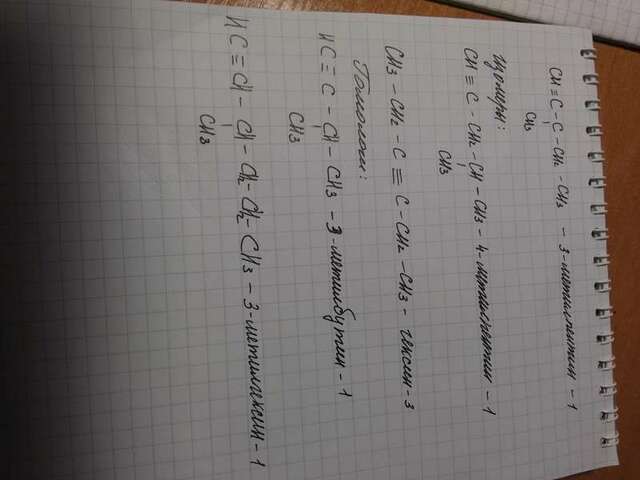 CH ≡ C - C - CH₂ - CH₃ - 3-метилпентин - 1
CH₃
Изомеры:
CH ≡ C - CH₂ - CH - CH₃ - 4-метилпентин - 1
CH₃
CH₃ - CH₂ - C ≡ C - CH₂ - CH₃ - гексин - 3
Гомологи:
HC ≡ C - CH - CH₃ - 3-метилбутин - 1
CH₃
HC ≡ CH - CH - CH₂ - CH₂ - CH₃ - 3-метилгексин - 1
CH₃